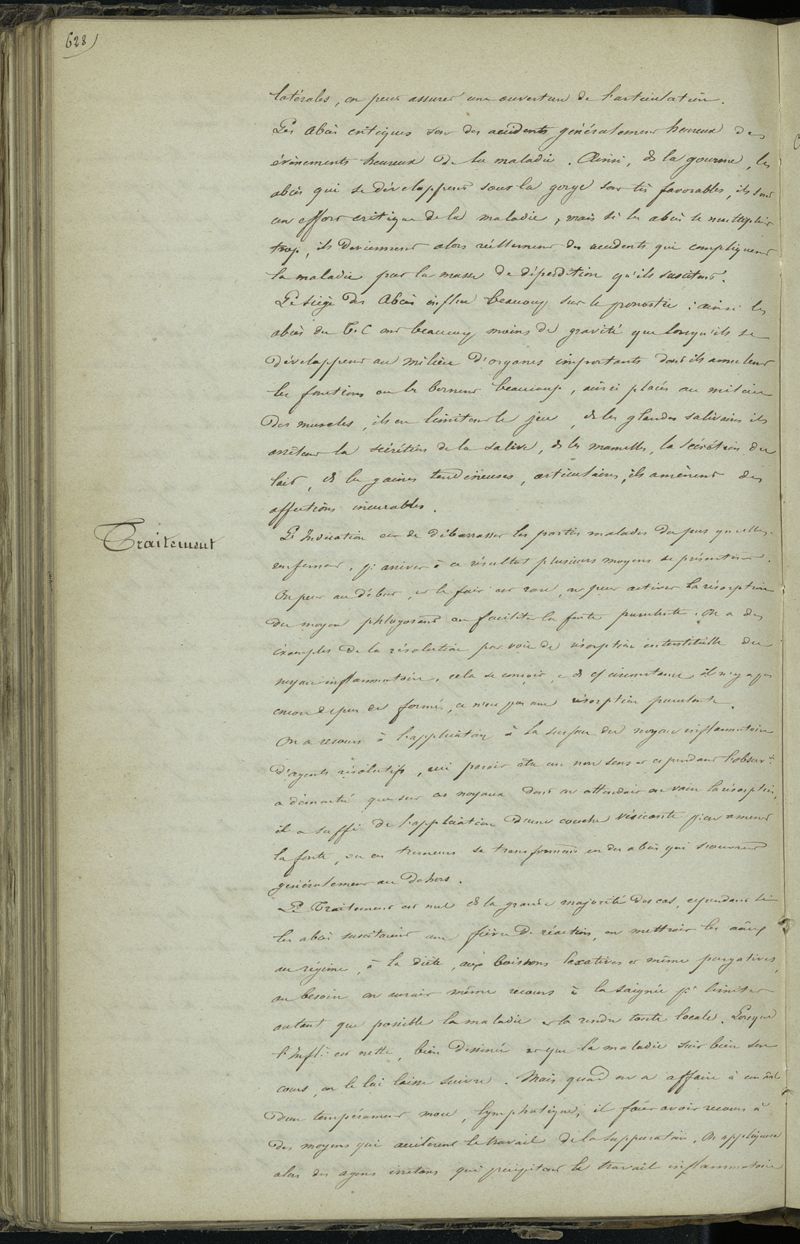 628)
latérales, on peut assurer une ouverture de l'articulation.
Les abcès critiques sont des accidents généralement heureux des
évènements heureux de la maladie. Ainsi, ds la gourme, les
abcès qui se développent sous la gorge sont très favorables, ils sont
un effort critique de la maladie, mais si les abcès se multiplient
trop, ils deviennent alors réellement des accidents qui compliquent
la maladie par la masse de déperdition qu'ils suscitent.
Le siège des abcès influe beaucoup sur le pronostic : ainsi les
abcès du T.C ont beaucoup moins de gravité que lorsqu'ils se
développent au milieu d'organes importants dont ils annulent
les fonctions ou les bornent beaucoup, ainsi placés au milieu
des muscles, ils en limitent le jeu, ds les glandes salivaires ils
arrêtent la sécrétion de la salive, ds les mamelles, la sécrétion du
lait, ds les gaines tendineuses, articulaires, ils amènent des
affections incurables.
Traitement
L'Indication est de débarrasser les parties malades du pus qu'elles
enferment, pr arriver à ce résultat plusieurs moyens se présentent.
On peut au début, et le fait est rare, on peut activer la résorption
du noyau phlegmoneux ou faciliter la fonte purulente. On a des
exemples de la résolution par voie de résorption interstitielle du
noyau inflammatoire, cela se conçoit, ds cette circonstance il n'y a pas
encore de pus de formé, ce n'est pas une résorption purulente.
On a recours à l'application à la surface du noyau inflammatoire
d'agents résolutifs, ceci paraît être un non sens et cependant l'observon
a démontré que sur ces noyaux dont on attendait en vain la résorption,
il a suffi de l'application d'une couche vésicante pour amener
la fonte, ou ces tumeurs se transforment en des abcès qui s'ouvrent
généralement au dehors.
Le Traitement est nul ds la grande majorité des cas, cependant si
les abcès suscitaient une fièvre de réaction, on mettrait les anx
au régime, à la diète, aux boissons laxatives et même purgatives,
au besoin on aurait même recours à la saignée pr limiter
autant que possible la maladie et la rendre toute locale. Lorsque
l'Inflon est nette, bien dessinée et que la maladie suit bien son
cours, on le lui laisse suivre. Mais quand on a affaire à un anl
d'un tempérament mou, lymphatique, il faut avoir recours à
des moyens qui accélèrent le travail de la suppuration. On applique
alors des agents irritans qui précipitent le travail inflammatoire